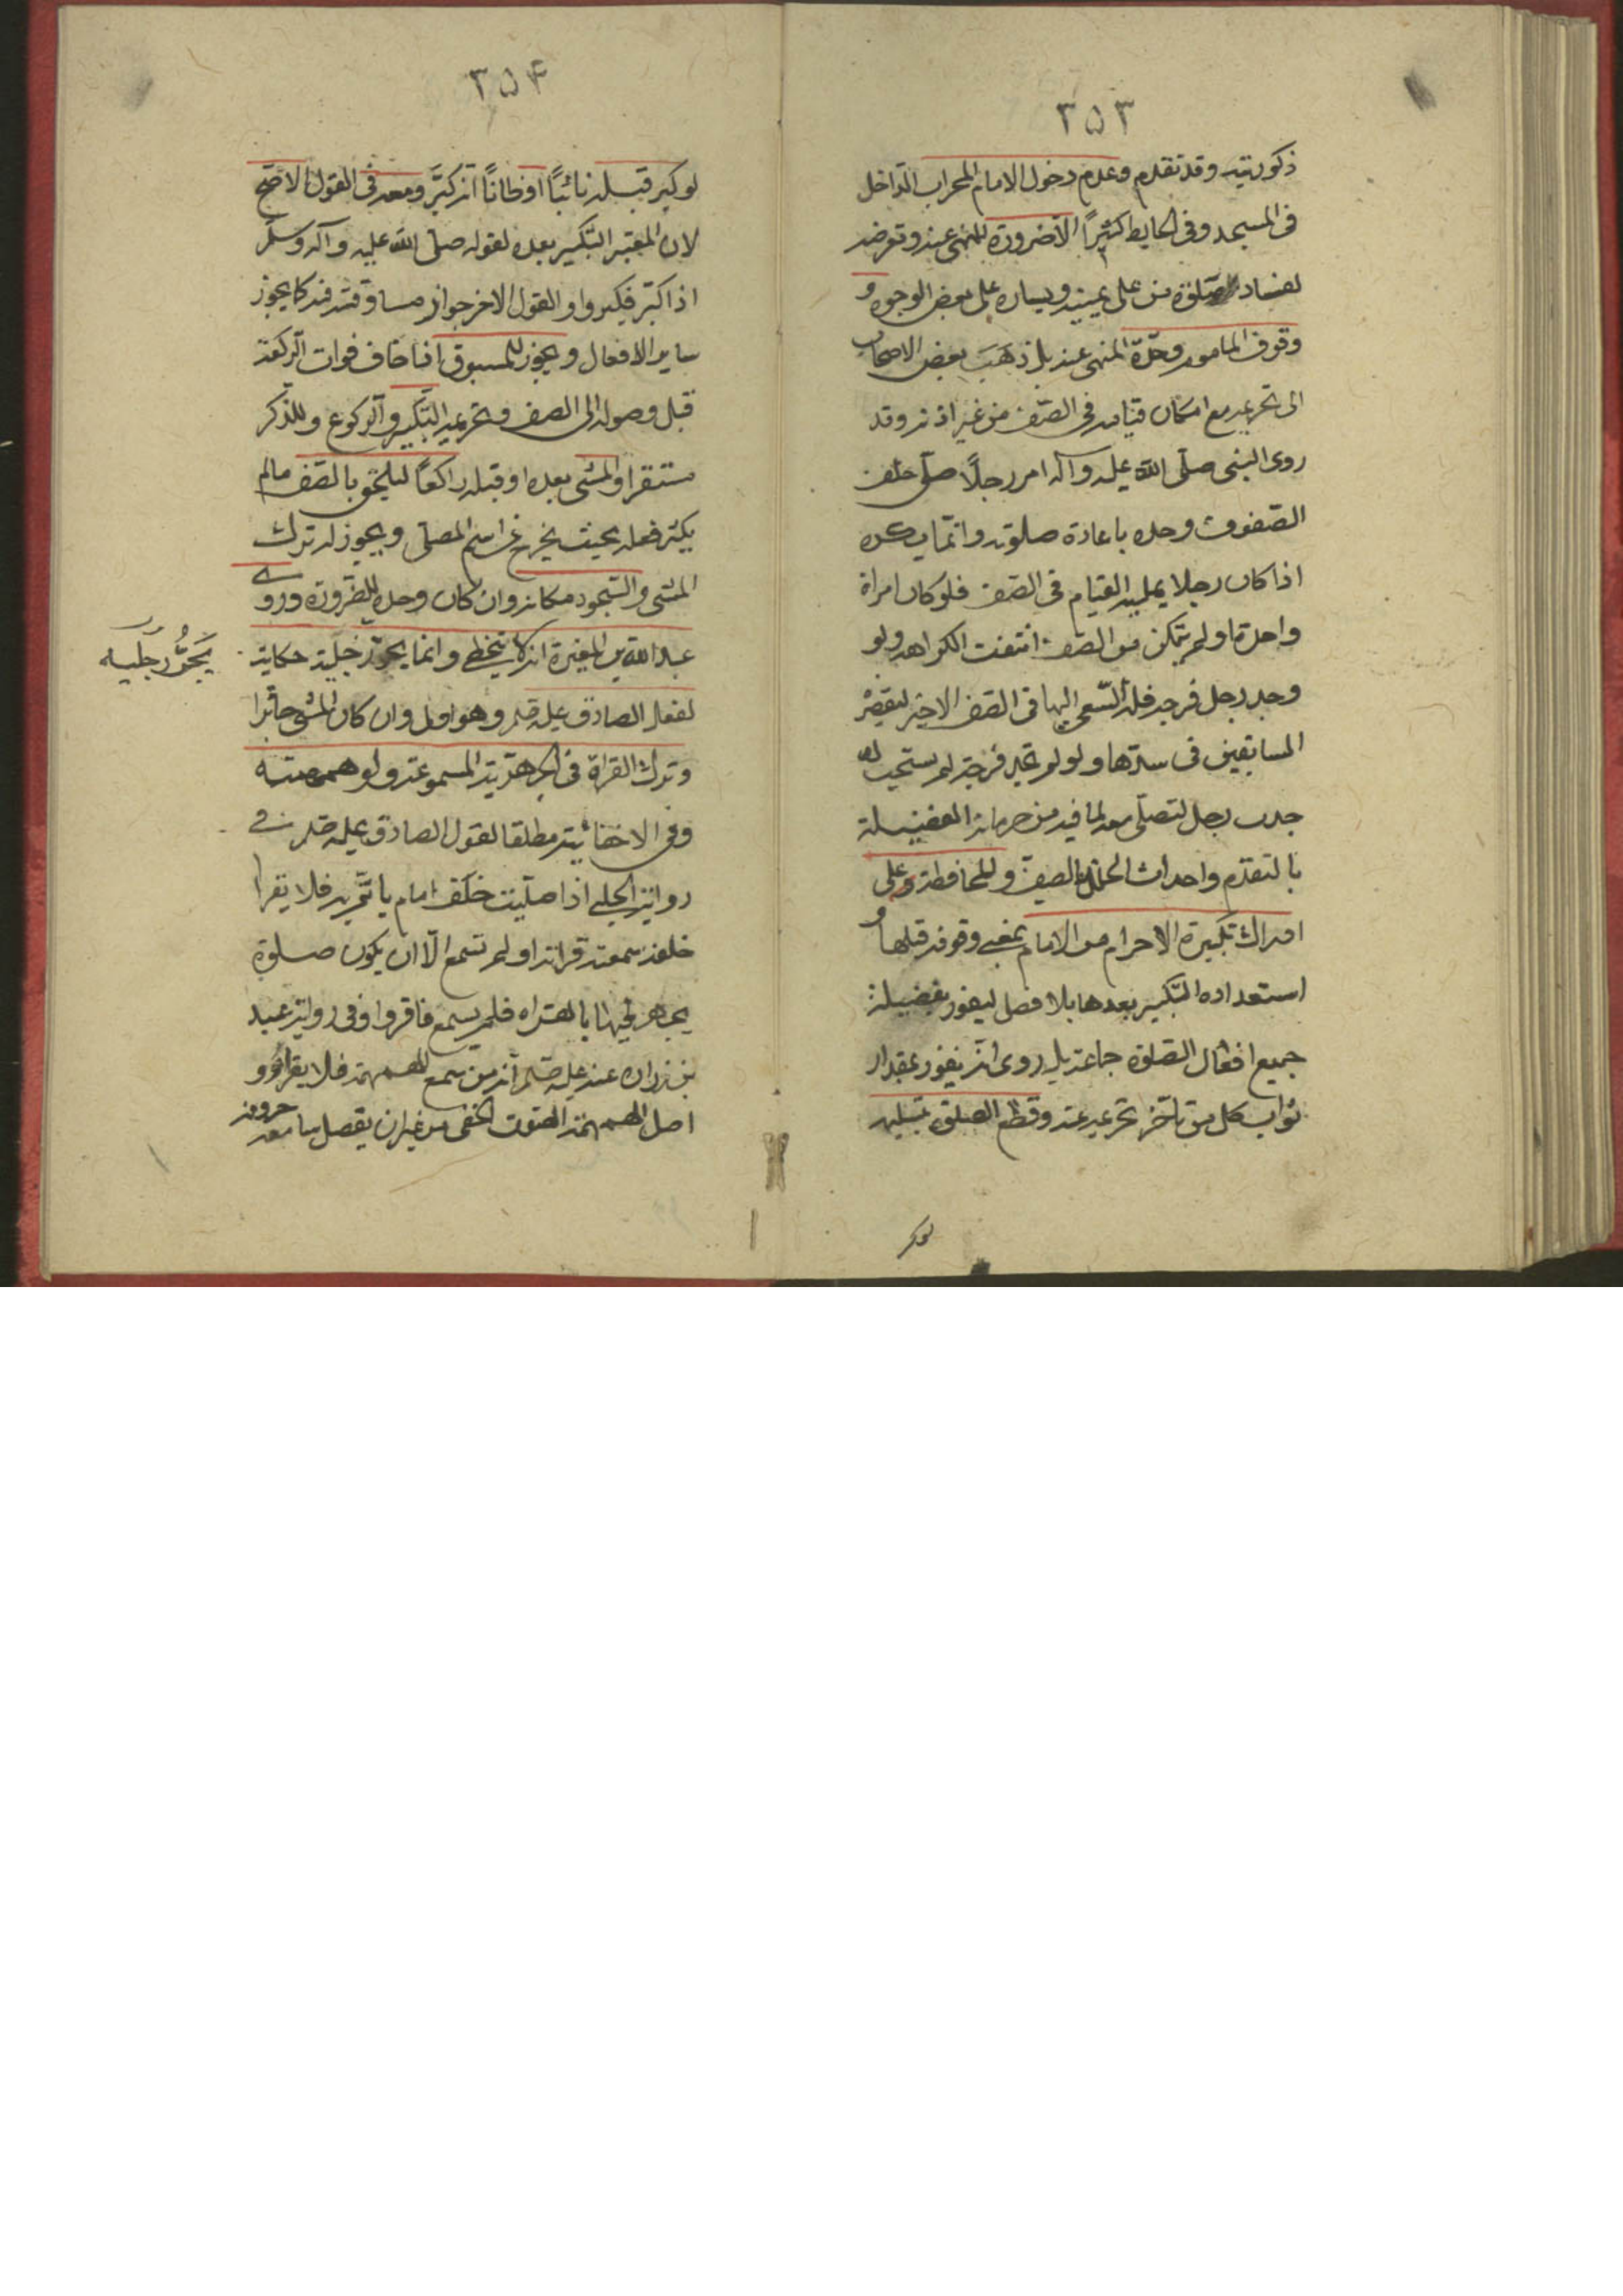 ٣٥٣
ذكوريته وقد تقدم وعدم دخول الامام المحراب الداخل
فى المسجد وفى الحايط كثيرًا الا ضرورة للنهى عنه وتعرضه
لفساد صلوة من على يمينه ويساره على بعض الوجوه و
وقوف الماموم وحدهٗ المنهى عنه بل ذهب بعض الاصحاب
الى تحريمه مع امكان قيامه فى الصف من غير اذنه وقد
روى النبى صلى الله عليه وآله امر رجلاً صلى خلف
الصفوف وحده باعادة صلوته وانما يكره
اذا كان رجلا يمكنه القيام فى الصف فلو كان امراة
واحدة او لم يتمكن من الصف انتفت الكراهه ولو
وجد رجل فرجه فله السعى اليها فى الصف الاخير لتقصير
السابقين فى سدها ولو لم تجد فرجة لم يستحب له
جذب رجل لتصلى معه لما فيه من حرمانه الفضيلة
بالتقدم واحداث الخلل بالصف والمحافظة على
ادراك تكبيرة الاحرام من الامام بمعنى وقوفه قبلها و
استعداده التكبير بعدها بلا فصل ليفوز بفضيلة
جميع افعال الصلوة جماعة بل روى انه يفوز بمقدار
ثواب كل من تاخر تحريمه عنه وقطع الصلوة بتسليمه
لوكبر
٣٥۴
لو كبر قبله نائبًا او ظانًا انه كبّر ومعه فى القول الاصح
لان المعتبر التكبير بعده لقوله صلى الله عليه وآله وسلم
اذا كبّر فكبروا والقول الاخر جواز مساوقته فيه كما يجوز
ساير الافعال ويجوز للمسبوق اذا خاف فوات الركعة
قبل وصوله الى الصف وتحريمه التكبير والركوع وللذكر
مستقرا والمشى بعده او قبله راكعًا ليلتحق بالصف مالم
يكثر فعله بحيث يخرج عن اسم المصلى ويجوز له ترك
المشى والسجود مكانه وان كان وحده للضرورة وروى
عبد الله بن المغيرة انه كان يتخطى وانما يجوز رجليه حكاية
يَجُرُّ رجليه
لفعل الصادق عليه السلم وهو اولى وان كان المشى جايزا
وترك القراة فى الجهرية المسموعة ولو همهمة
وفى الاخفاتية مطلقا لقول الصادق عليه السلم فى
رواية الحلبى اذا صليت خلف امام ياتم به فلا يقرا
خلفه سمعت قراته او لم تسمع الّا ان يكون صلوة
يجاهر فيها بالقراه فلم يسمع فاقروا وفى رواية عبيد
بن زراره عنه عليه السلم انه من سمع الهمهمة فلا يقرا و
اصل الهمهمة الصوت الخفى من غير ان يفصل سامعه حروفه